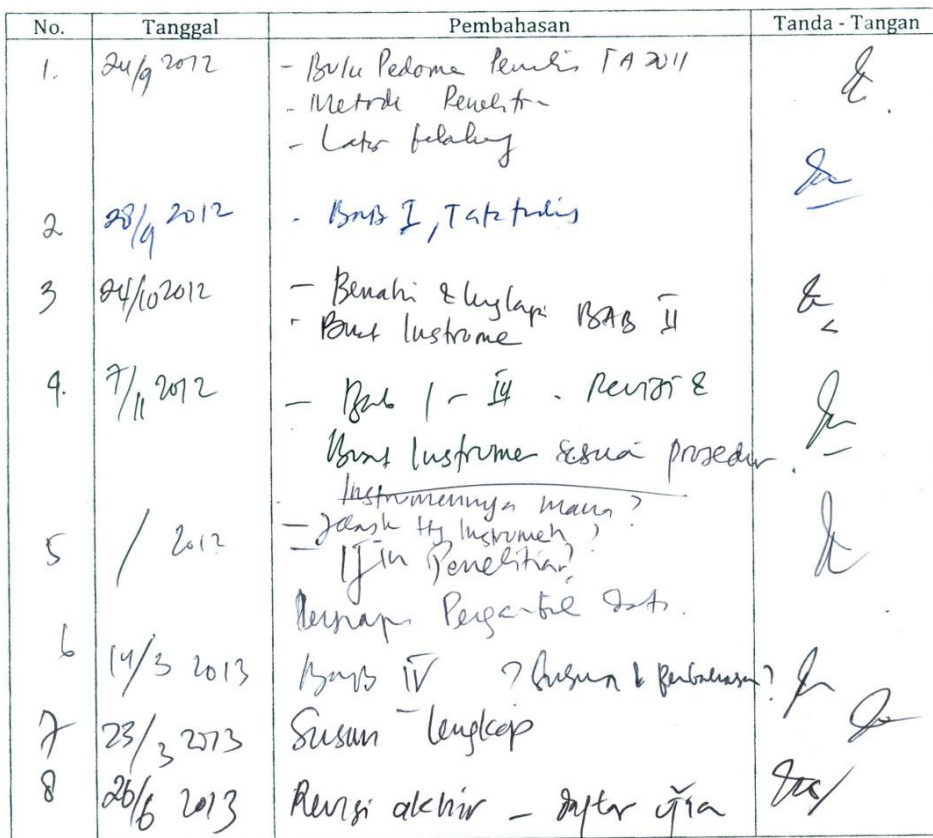 No. Tanggal Pembahasan Tanda - Tangan
1. 24/9 2012 - Buku Pedoma Penulis TA 2011
- Metode Penelitn
- Latar belakang
2 28/9 2012 - BAB I, Tata tulis
3 24/10 2012 - Benahi & lengkapi BAB II
- Buat Instrume
4. 7/11 2012 - Bab I - III. Revisi &
Buat Instrumen sesuai prosedur.
Instrumennya mana?
5 / 2012 - Jelask ttg Instrumen?
- Ijin Penelitian?
Persiapn Pengambil Data.
6 14/3 2013 BAB IV ? Susun & Pembahasan?
7 23/3 2013 Susun lengkap
8 26/6 2013 Revisi akhir - daftar ujian